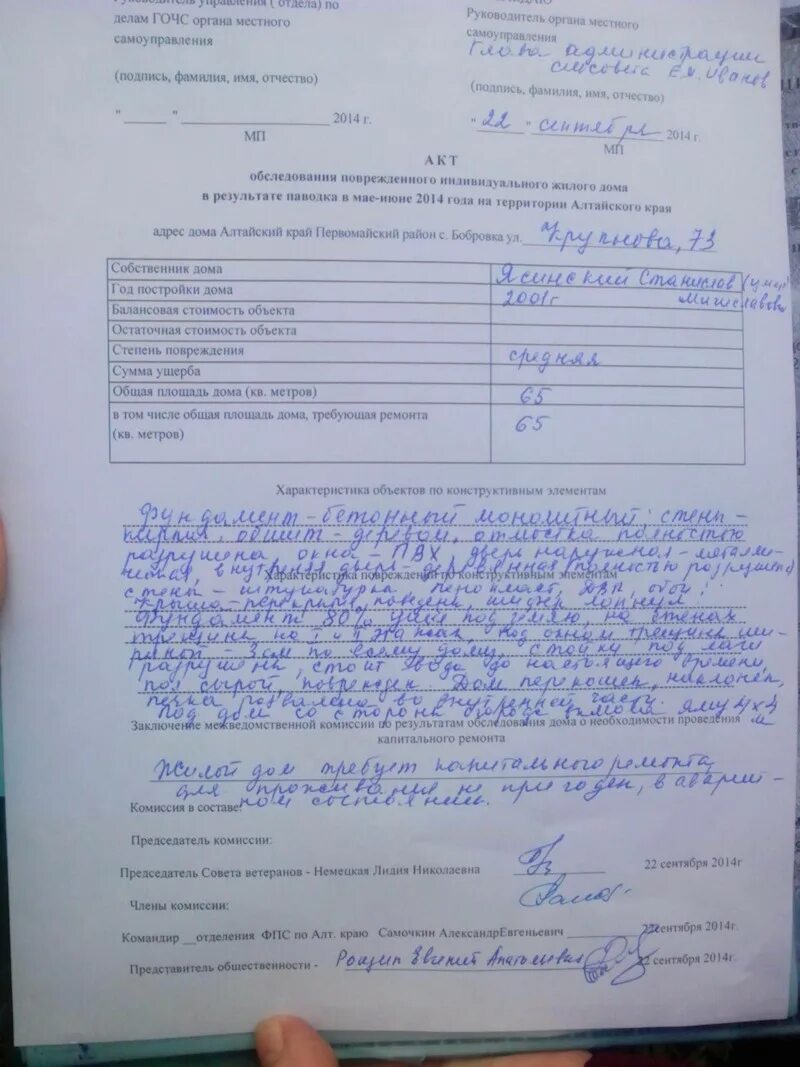 Руководитель управления ( отдела) по
делам ГОЧС органа местного
самоуправления
(подпись, фамилия, имя, отчество)
"______ " ______________________ 2014 г.
МП
Руководитель органа местного
самоуправления
Глава администрации
сельсовета Е.М. Иванов
(подпись, фамилия, имя, отчество)
" 22 " сентября 2014 г.
МП
АКТ
обследования поврежденного индивидуального жилого дома
в результате паводка в мае-июне 2014 года на территории Алтайского края
адрес дома Алтайский край Первомайский район с. Бобровка ул. Крупнова, 73
Собственник дома Ясинский Станислав
Год постройки дома 2001г
Балансовая стоимость объекта
Остаточная стоимость объекта
Степень повреждения средняя
Сумма ущерба
Общая площадь дома (кв. метров) 65
в том числе общая площадь дома, требующая ремонта 65
(кв. метров)
Характеристика объектов по конструктивным элементам
Фундамент - бетонный монолитный; стены -
кирпич, обшит - деревом, отмостка полностью
разрушена, окна - ПВХ дверь наружная - металли-
ческая, внутреняя дверь - деревянная (полностью разрушена)
Характеристика повреждений по конструктивным элементам
стены - штукатурка, пенопласт, ДВП, обои;
Крыша - перекрытия шифер лопнул
Фундамент 80% ушел под землю, на стенах
трещины на I и II этажах, под окном трещина ши-
риной - 3см по всему дому, стойки под лаги
разрушены, стоит вода до настоящего времени,
пол сырой, поврежден. Дом перекошен, наклонен,
печка развалена во внутренней части.
Под дом со стороны яму 4х4
м
Заключение межведомственной комиссии по результатам обследования дома о необходимости проведения
капитального ремонта
Жилой дом требует капитального ремонта,
для проживания не пригоден, в аварий-
ном состоянии.
Комиссия в составе:
Председатель комиссии:
Председатель Совета ветеранов - Немецкая Лидия Николаевна 22 сентября 2014г
Члены комиссии:
Командир __отделения ФПС по Алт. краю Самочкин АлександрЕвгеньевич 22сентября 2014г.
Представитель общественности - Рощин Евгений Анатольевич 22 сентября 2014г.